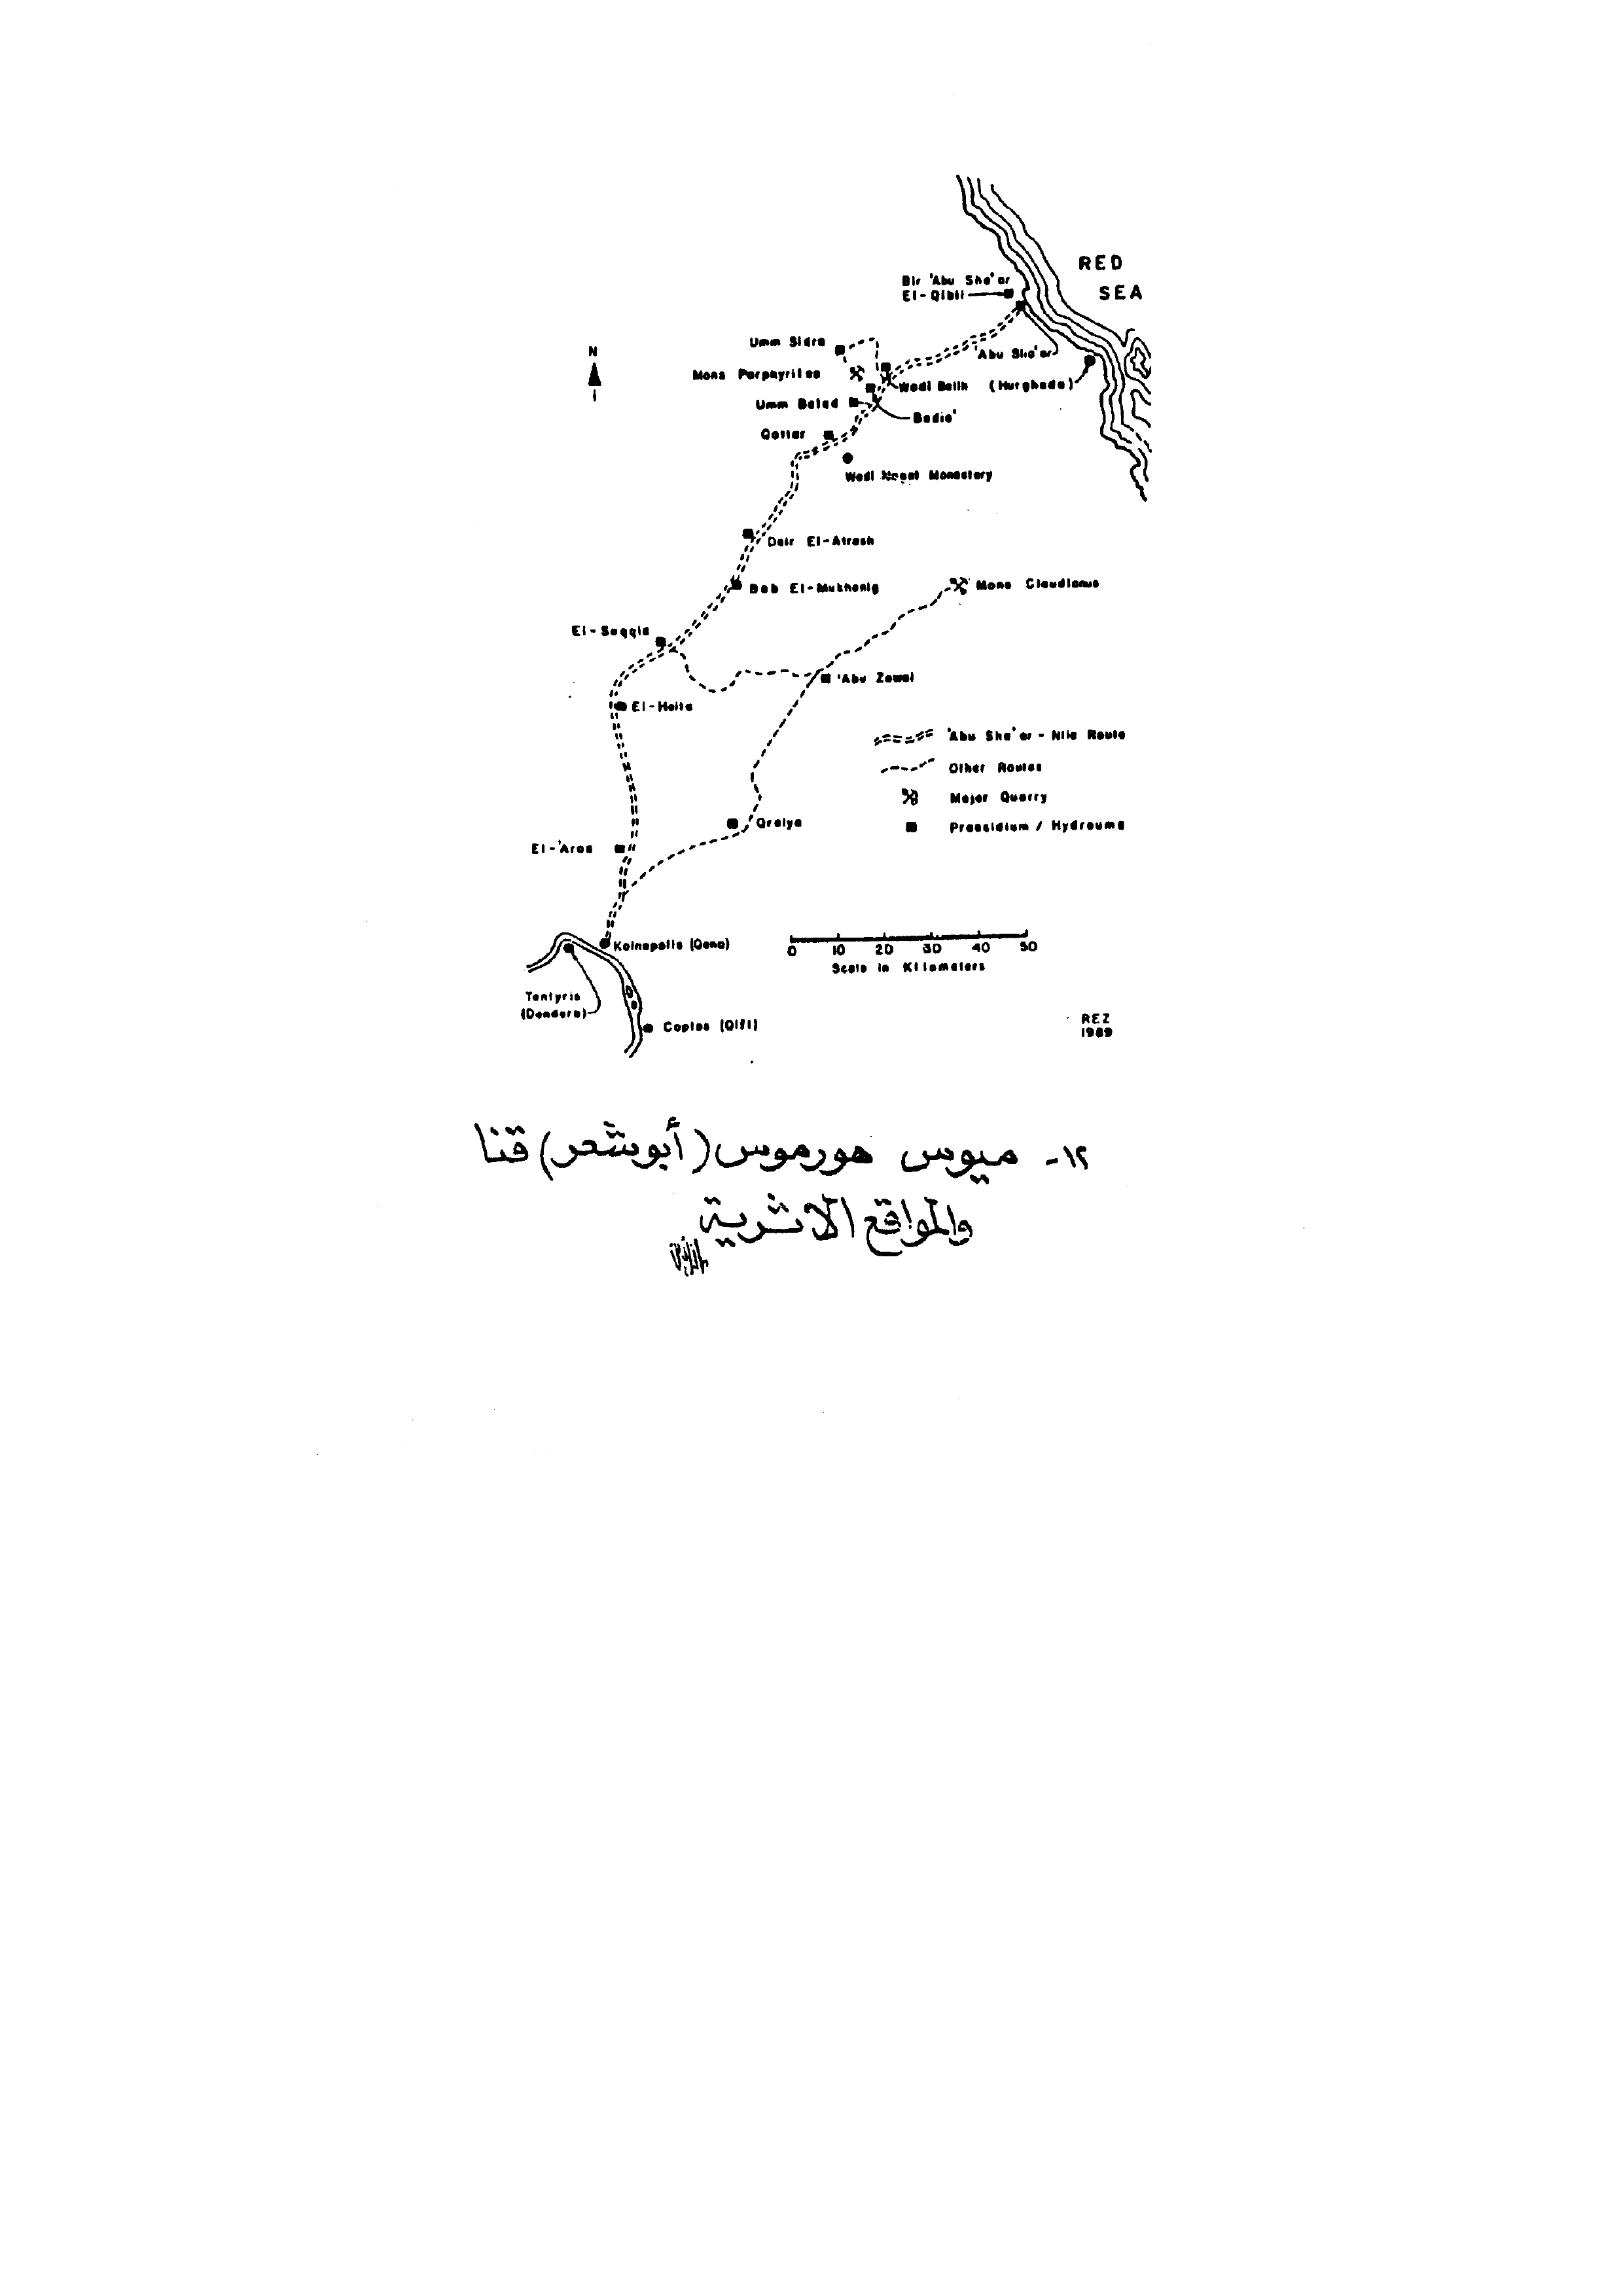 RED
SEA
Bir 'Abu Sha'ar
El-Qibli
Umm Sidra
'Abu Sha'ar
N
Mons Porphyrites
Wadi Belih
(Hurghada)
Umm Balad
Badia'
Qattar
Wadi Monastery
Deir El-Atrash
Bab El-Mukhenig
Mons Claudianus
El-Saqqia
'Abu Zawal
El-Heita
'Abu Sha'ar - Nile Route
Other Routes
Major Quarry
Qraiya
Praesidium / Hydreuma
El-'Aras
Kainepolis (Qena)
0 10 20 30 40 50
Scale in Kilometers
Tentyris
(Dendera)
Coptos (Qift)
REZ
1989
١٢- ميوس هورموس (أبوشعر) قنا
والمواقع الاثرية